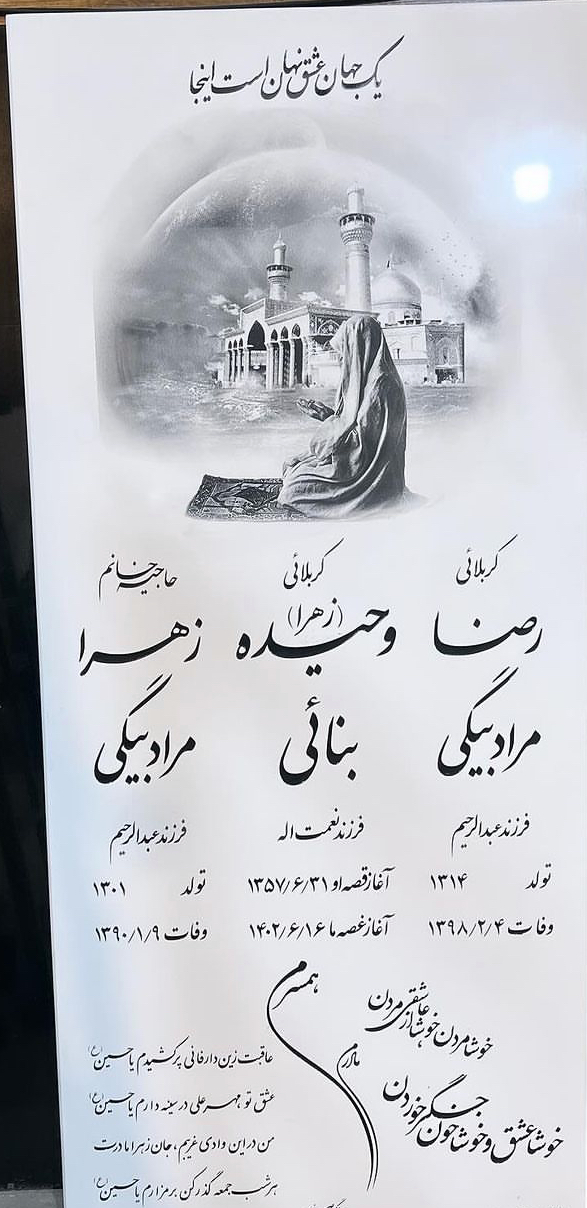 یک جهان عشق نهان است اینجا
کربلائی
رضا
مرادبیگی
فرزند عبدالرحیم
تولد ۱۳۱۴
وفات ۱۳۹۸/۲/۴
کربلائی
(زهرا)
وحیده
بنائی
فرزند نعمت اله
آغاز قصه او ۱۳۵۷/۶/۳۱
آغاز غصه ما ۱۴۰۲/۶/۱۶
حاجیه خانم
زهرا
مرادبیگی
فرزند عبدالرحیم
تولد ۱۳۰۱
وفات ۱۳۹۰/۱/۹
خوشا مردن خوشا از عاشقی مردن
خوشا عشق و خوشا خون جگر خوردن
همسرم
مادرم
عاقبت زین دار فانی پر کشیدم یا حسین (ع)
عشق تو مهر علی در سینه دارم یا حسین (ع)
من در این وادی غریبم، جان زهرا مادرت
هر شب جمعه گذر کن بر مزارم یا حسین (ع)